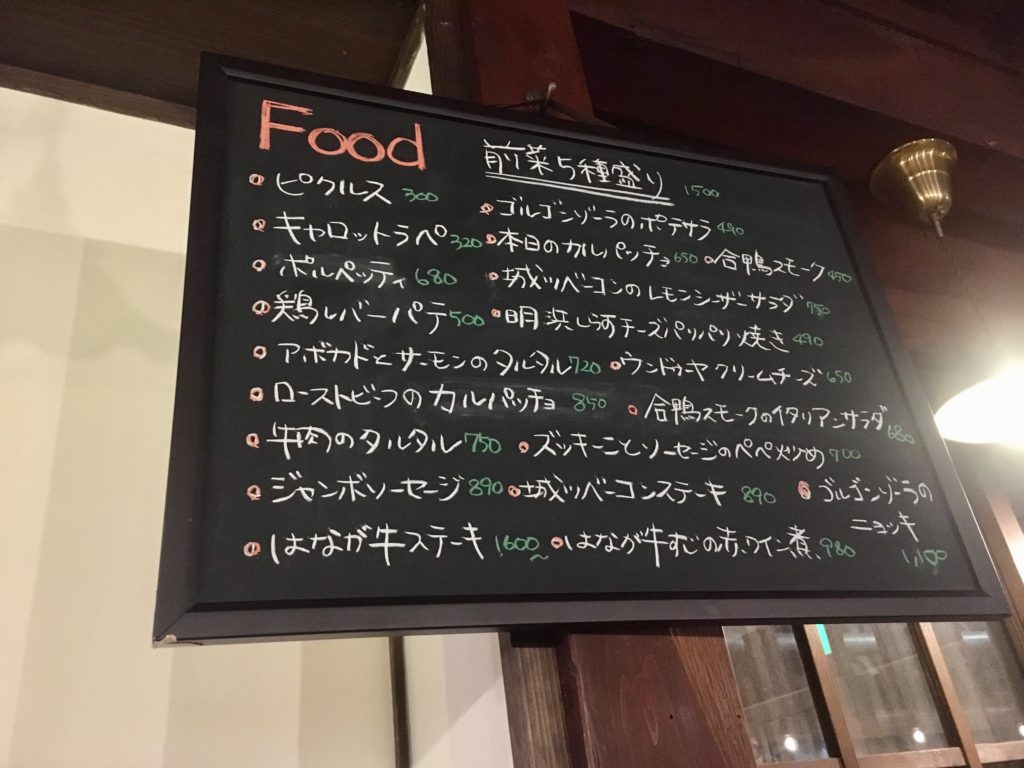 Food
前菜5種盛り 1500
ピクルス 300
ゴルゴンゾーラのポテサラ 490
キャロットラペ 320
本日のカルパッチョ 650
合鴨スモーク 450
ポルペッティ 680
城ツベーコンのレモンシーザーサラダ 750
鶏レバーパテ 500
明浜しらす チーズパリパリ焼き 490
アボカドとサーモンのタルタル 720
ウンドゥヤ クリームチーズ 650
ローストビーフのカルパッチョ 850
合鴨スモークのイタリアンサラダ 680
牛肉のタルタル 750
ズッキーニとソーセージのペペ炒め 700
ジャンボソーセージ 890
城ツベーコンステーキ 890
ゴルゴンゾーラの
ニョッキ
1,100
はなが牛ステーキ 1,600~
はなが牛すじの赤ワイン煮 980